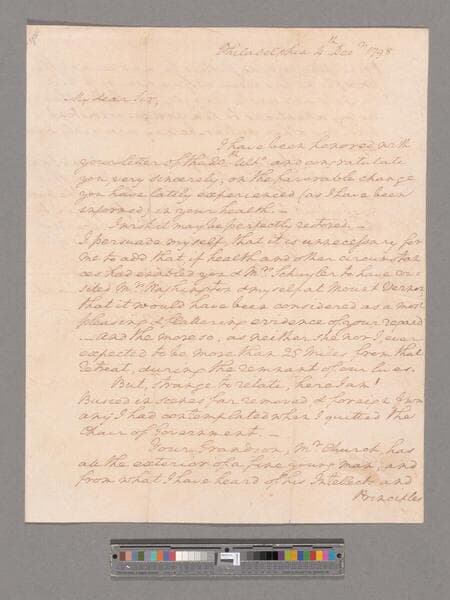 Philadelphia 4th Decr 1798
My dear Sir,
I have been honored with
your letter of the 20th Ulto and congratulate
you very sincerely, on the favorable change
you have lately experienced (as I have been
informed) in your health.—
I wish it may be perfectly restored.—
I persuade myself, that it is unnecessary for
me to add that if health and other circumstan
ces had enabled you & Mrs Schuyler to have vi-
sited Mrs Washington & myself at Mount Vernon,
that it would have been considered as a most
pleasing & flattering evidence of your regard
—And the more so, as neither she nor I ever
expected to be more than 25 miles from that
retreat, during the remnant of our lives.
But, strange to relate, here I am!
Busied in scenes far removed & foreign from
any I had contemplated when I quitted the
Chair of Government.—
Your Grandson, Mr Church, has
all the exterior of a fine young man, and
from what I have heard of his Intellect and
Principles